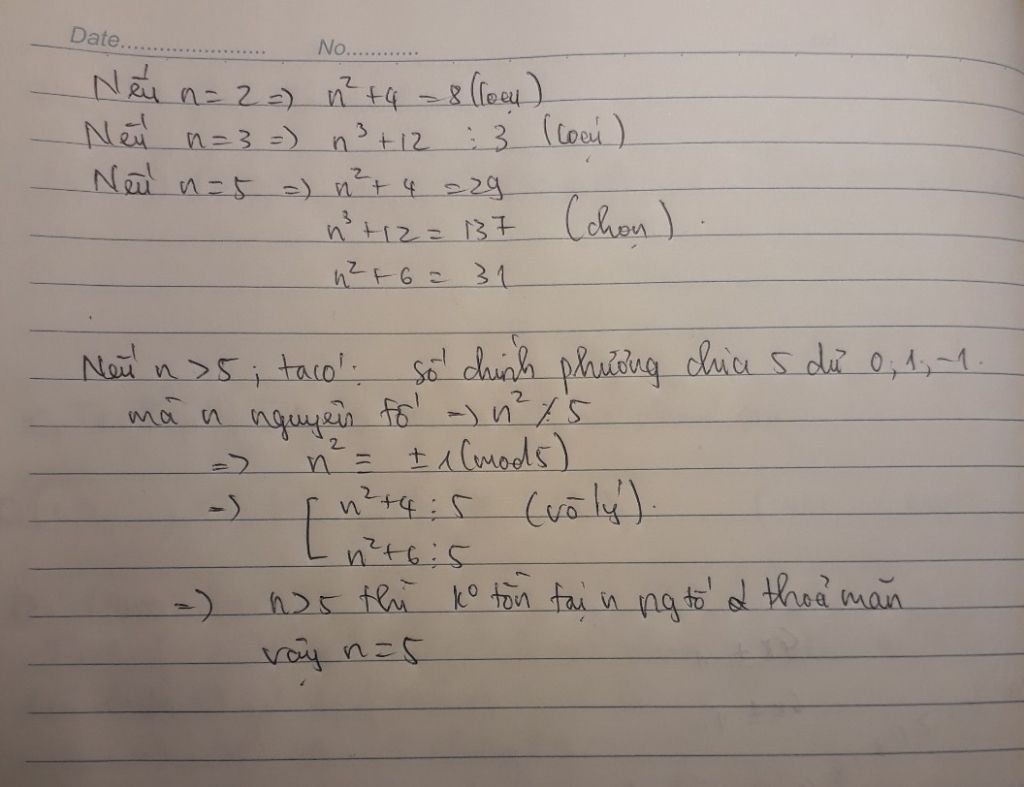 Date.......................... No.............
Nếu n=2 => n²+4 =8 (loại)
Nếu n=3 => n³+12 ⋮ 3 (loại)
Nếu n=5 => n²+4 =29
n³+12 = 137 (chọn).
n²+6 = 31
Nếu n>5; ta có: số chính phương chia 5 dư 0, 1, -1.
mà n nguyên tố => n² ⋮̸ 5
=> n² ≡ ±1 (mod5)
=> [ n²+4 ⋮ 5 (vô lý).
n²+6 ⋮ 5
=> n>5 thì k° tồn tại n ng tố thoả mãn
vậy n=5